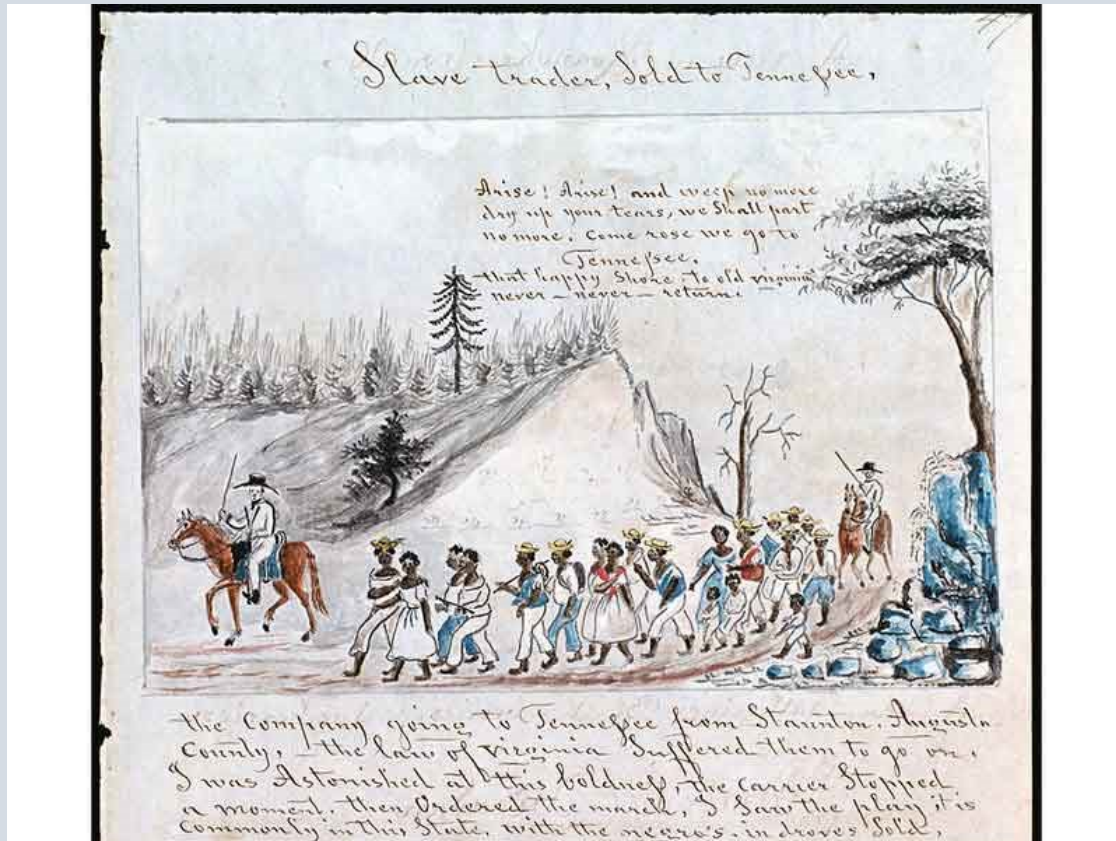 Slave trader, Sold to Tennessee,
Arise! Arise! and weep no more
dry up your tears, we Shall part
no more. Come rose we go to
Tennessee,
that happy Shore, to old virginia
never - never - return.
the Company going to Tennessee from Staunton, Augusta
County, - the law of virginia Suffered them to go on.
I was Astonished at this boldness, the carrier Stopped
a moment, then Ordered the march, I Saw the play it is
Commonly in this State, with the negro's in droves Sold,